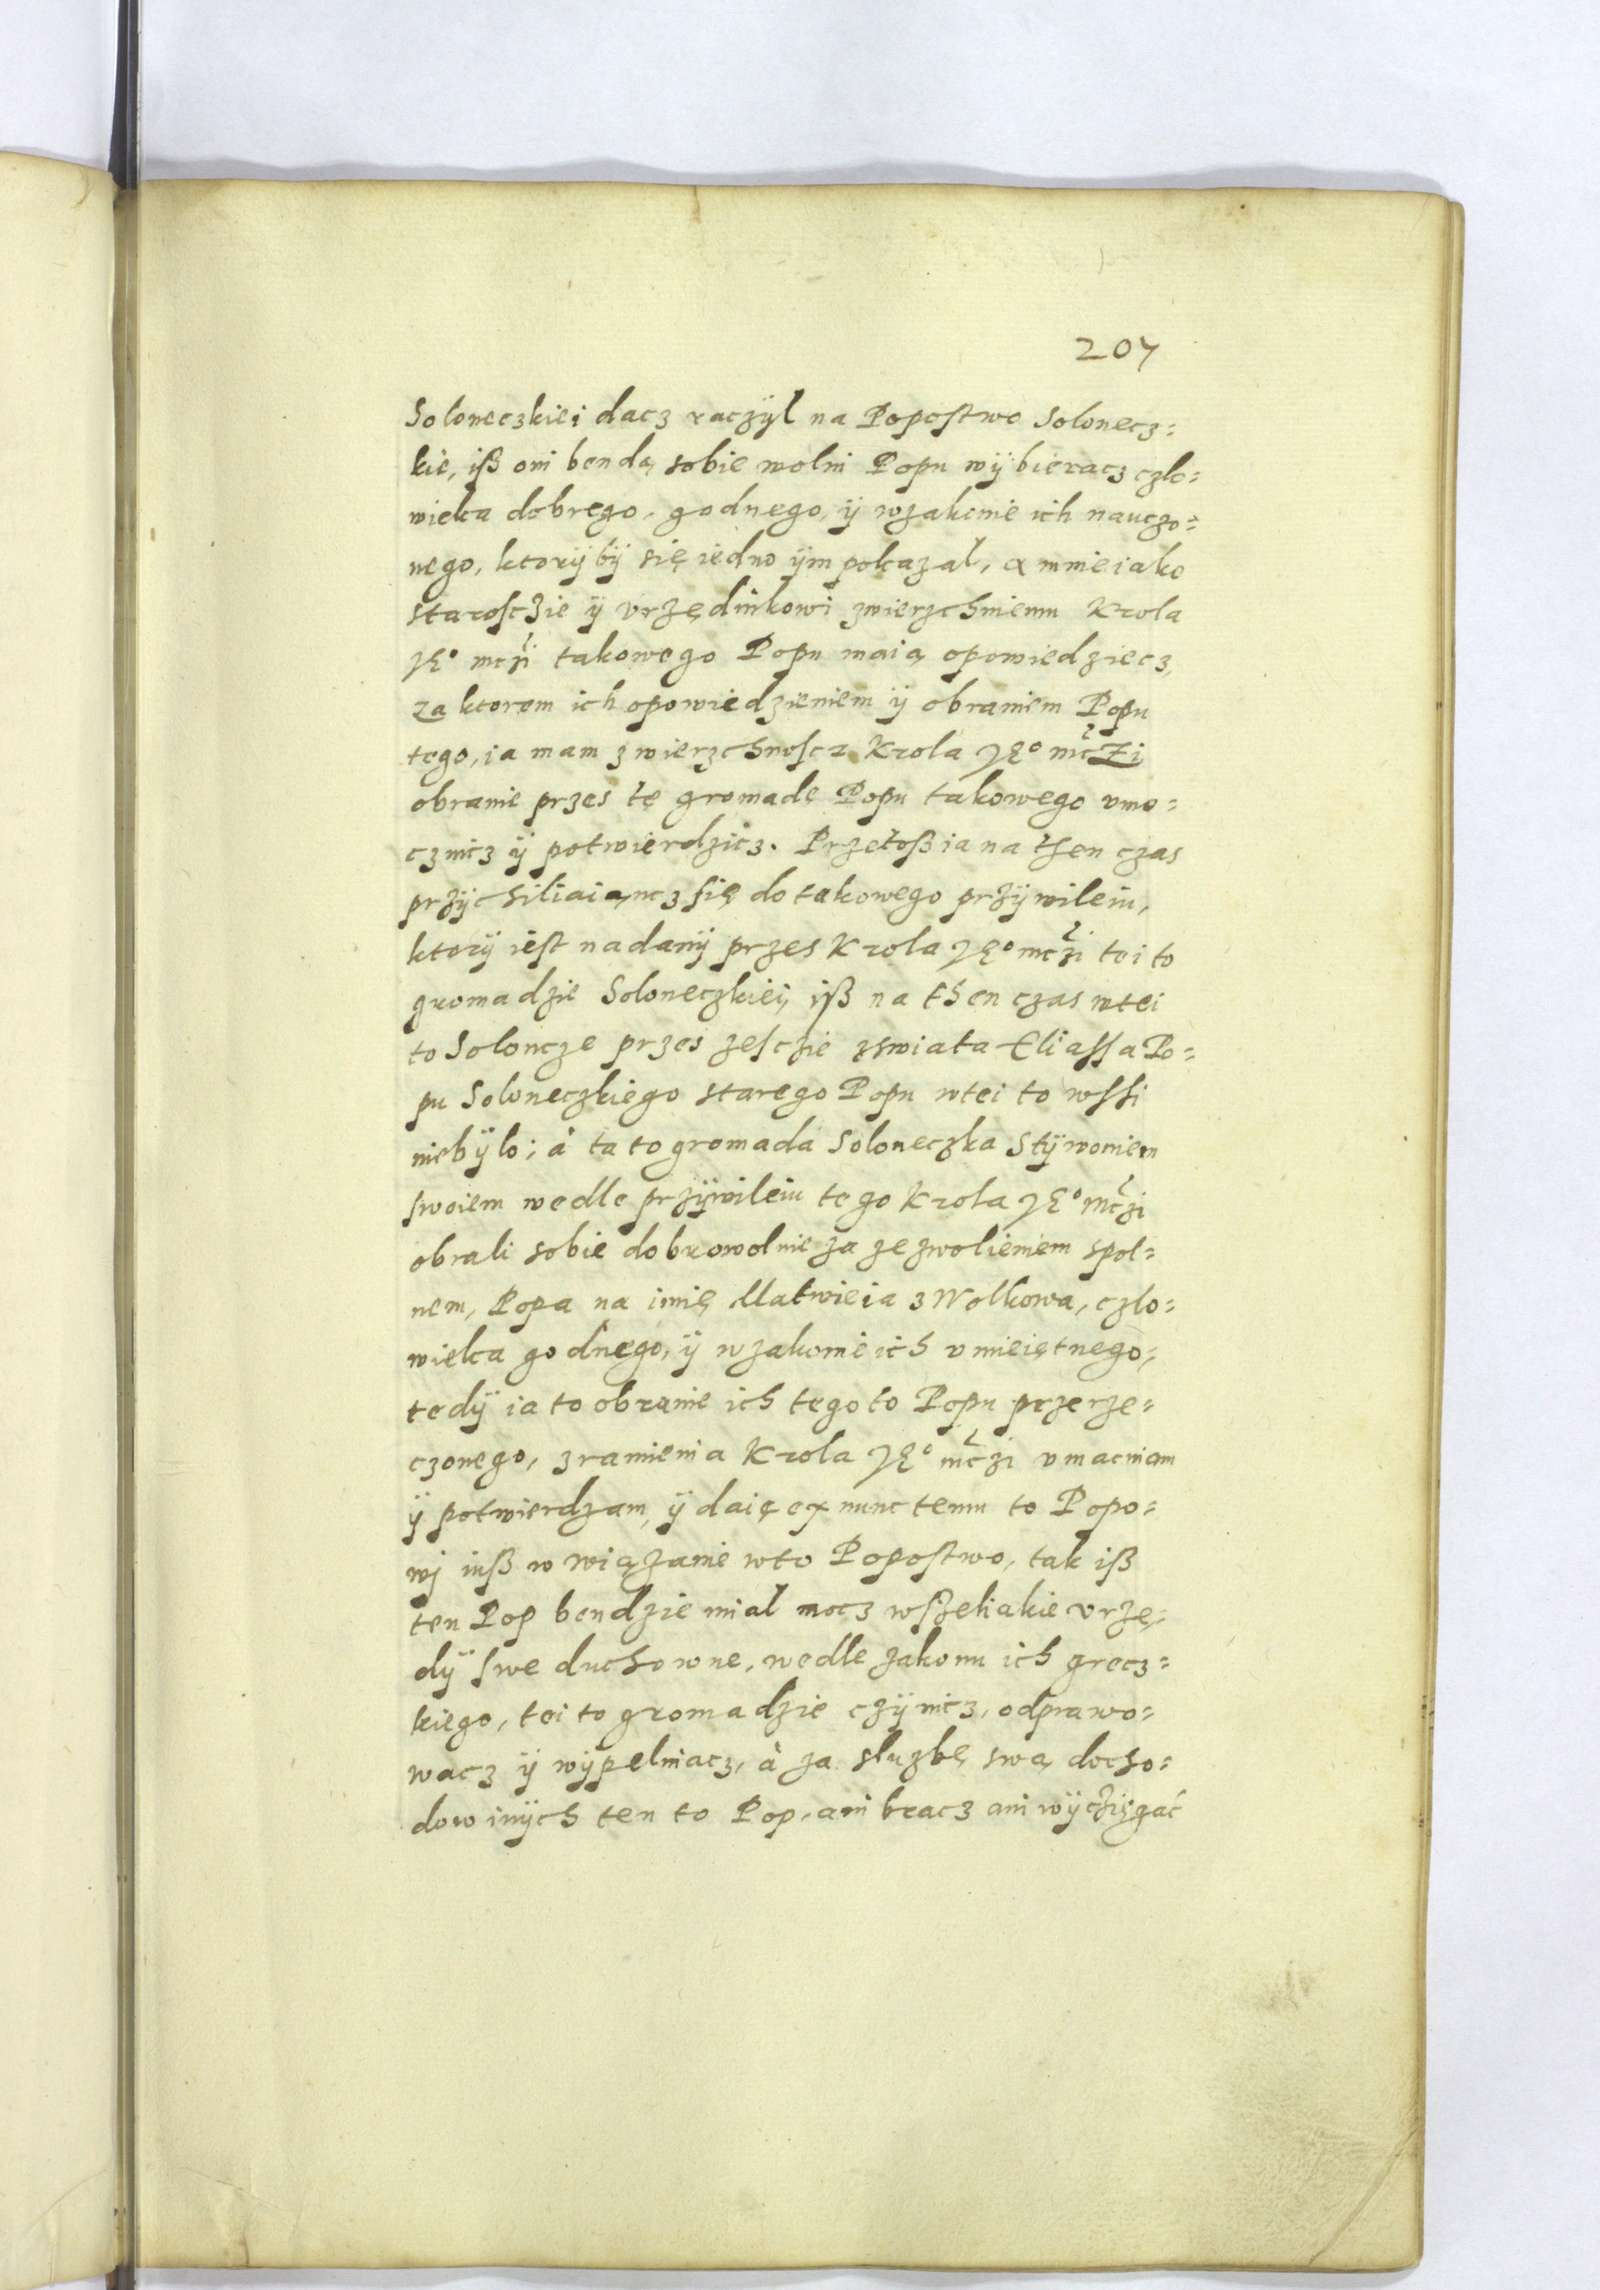 207
Soloneczkiei dacz raczÿl na Popostwo Solonecz=
kie, iß oni bendą sobie wolni Popu wÿbieracz czło=
wieka dobrego, godnego, ÿ wzakonie ich nauczo=
nego, ktorÿ bÿ się iedno ÿm pokazal, a mnie iako
starosczie ÿ vrzędnikowi zwierzchniemu Krola
JEo mczÿ takowego Popu maią opowiedziecz,
za ktorem ich opowiedzieniem ÿ obraniem Popu
tego, ia mam zwierzchnoscz Krola JEo mczi
obranie przes tę gromadę Popu takowego vmo=
cznicz ÿ potwierdzicz. Przetoß ia na then czas
przÿchiliaiącz się do takowego przÿwileiu,
ktorÿ iest nadanÿ przes Krola JEo mczi tei to
gromadzie Soloneczkiei, iß na then czas wtei
to Soloncze przes zesczie zswiata Eliassa Po=
pu Soloneczkiego starego Popu wtei to wssi
niebÿlo; à ta to gromada Soloneczka Stÿwoniem
swoiem wedle przÿwileiu tego Krola JEo mczi
obrali sobie dobrowolnie za zezwoleniem spol=
nem, Popa na imię Matwieia z Wolkowa, czło=
wieka godnego, ÿ wzakonie ich vmieiętnego,
tedÿ ia to obranie ich tego to Popu przerze=
czonego, zramienia Krola JEo mczi vmacniam
ÿ potwierdzam, ÿ daię ex nunc temu to Popo=
wi iuß wwiązanie wto Popostwo, tak iß
ten Pop bendzie mial mocz wszeliakie vrzę=
dÿ swe duchowne, wedle zakonu ich grecz=
kiego, tei to gromadzie czÿnicz, odprawo=
wacz ÿ wÿpelniacz, à za służbę swą docho=
dow inÿch ten to Pop, ani bracz ani wÿcziẹgać